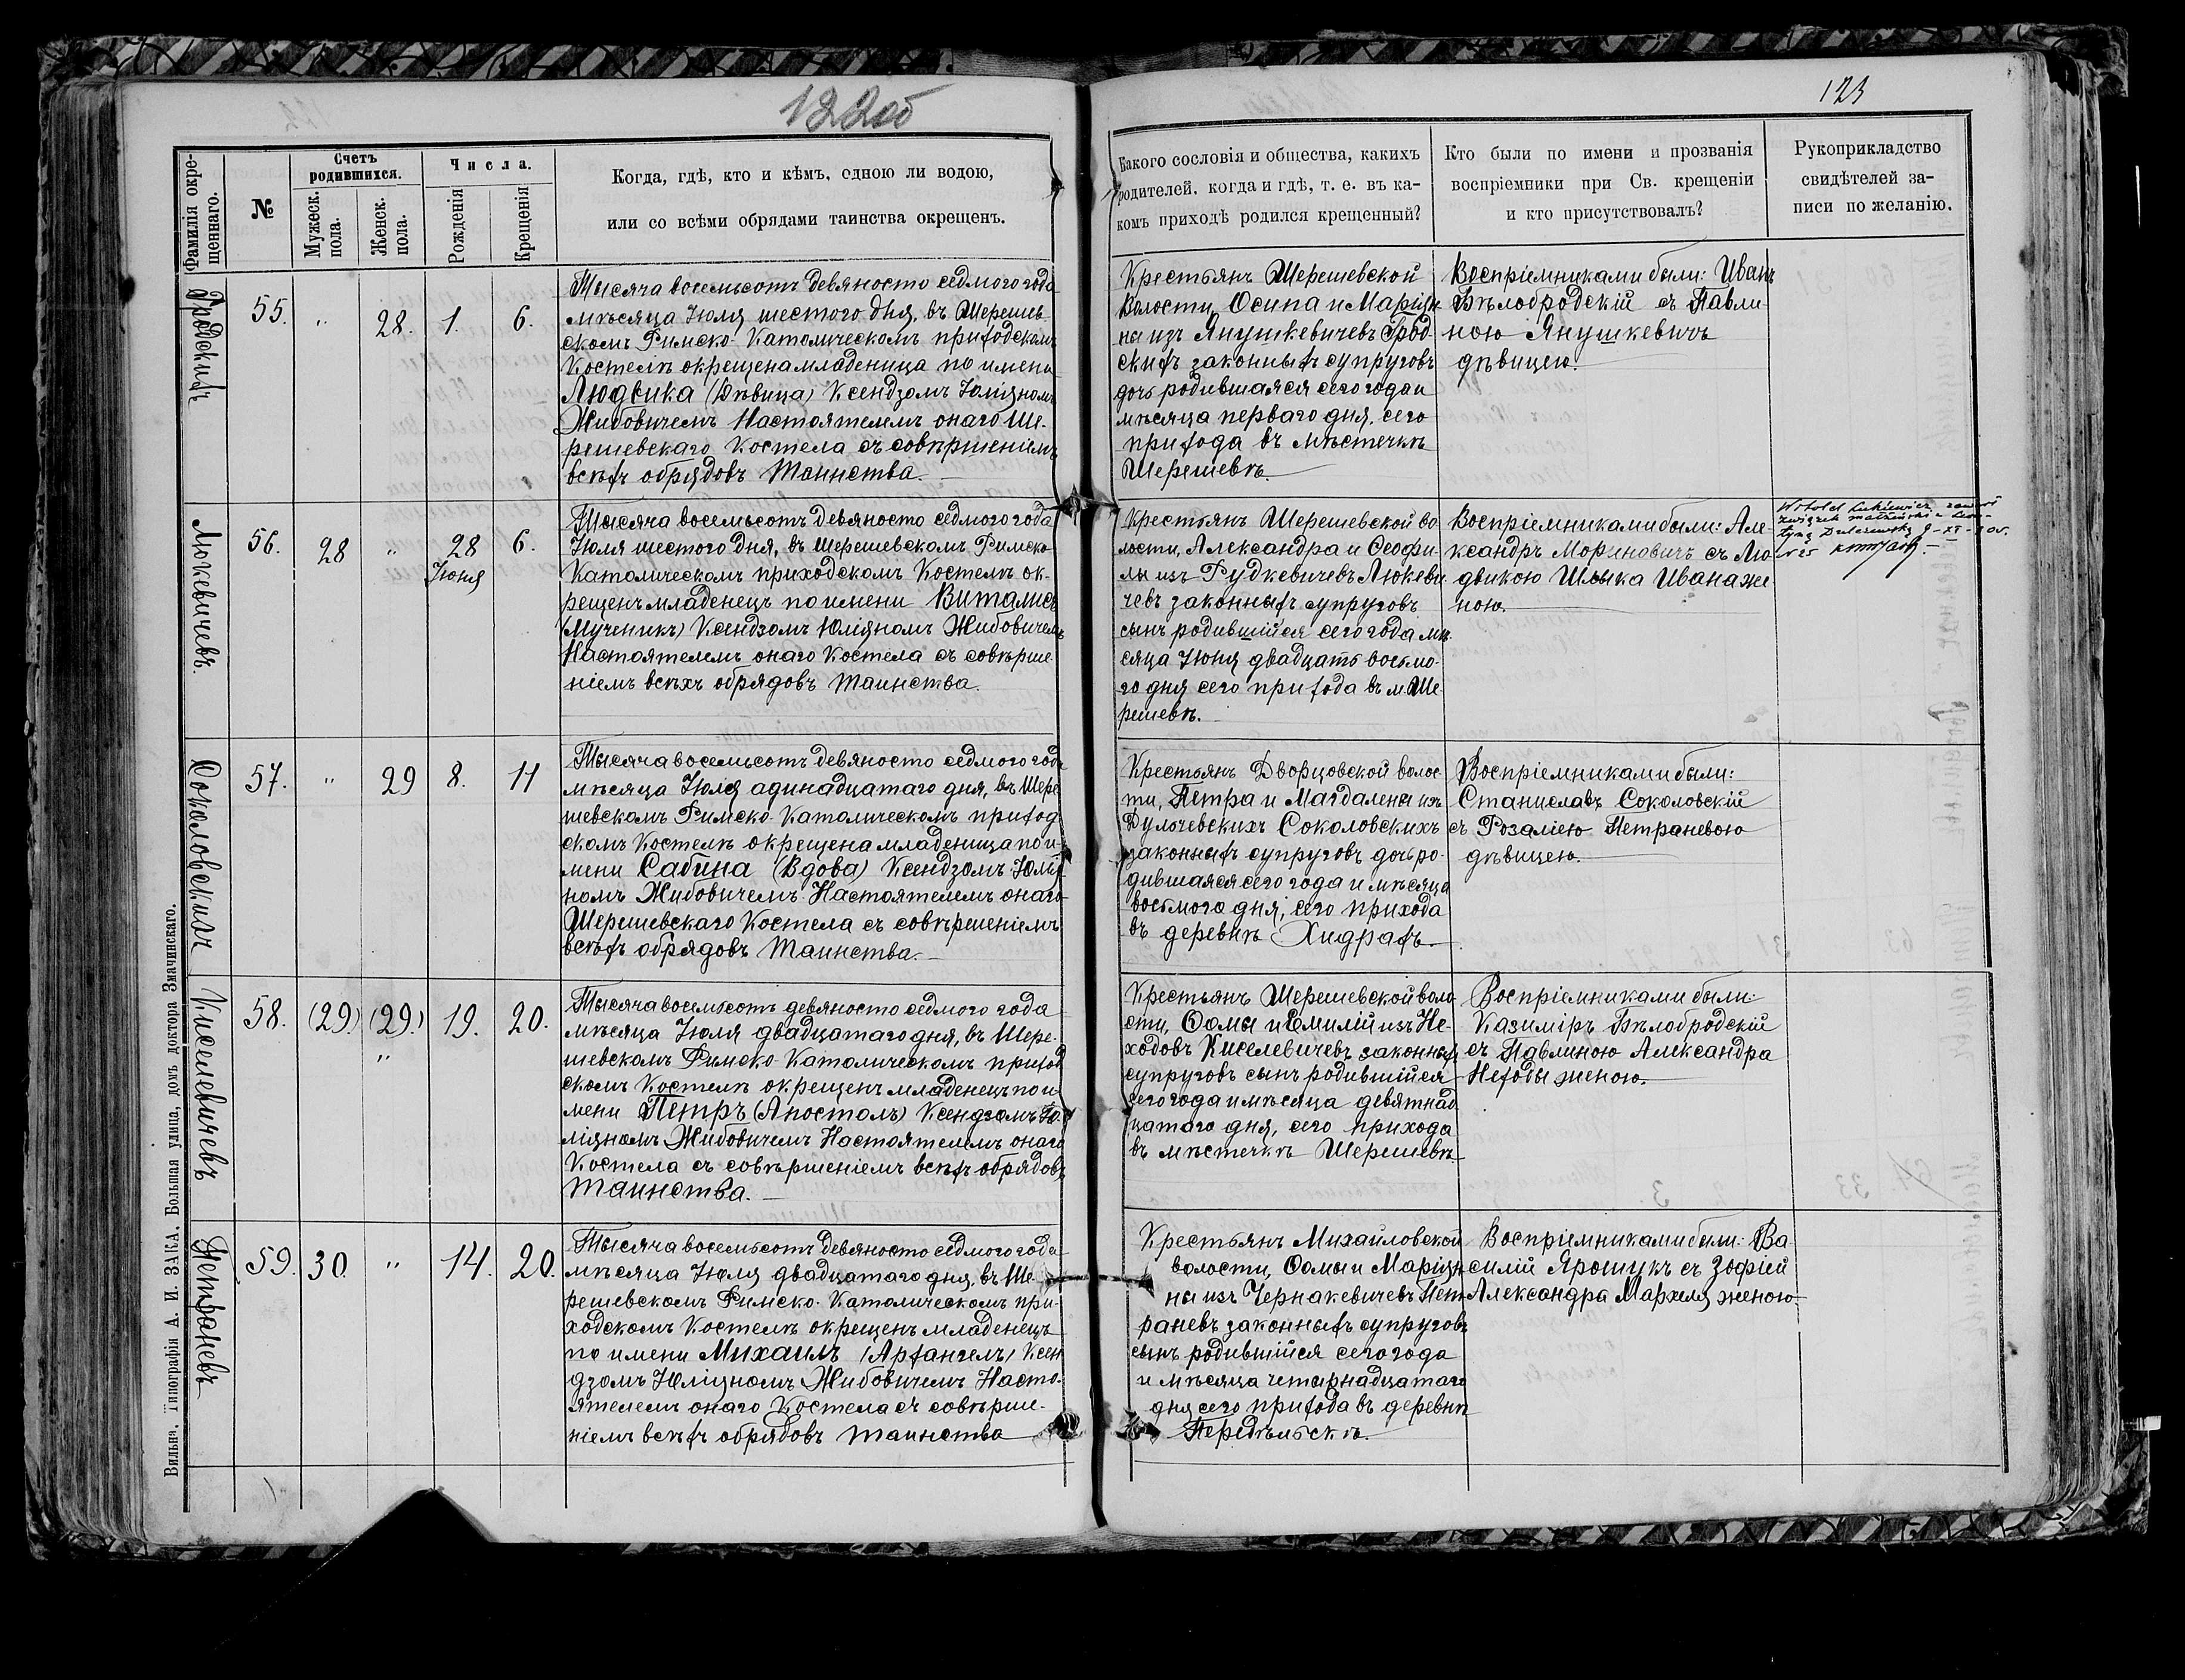 122об
123
Фамилія окре-
щеннаго.
№
Счетъ
родившихся.
Мужеск.
пола.
Женск.
пола.
Числа.
Рожденія
Крещенія
Когда, гдѣ, кто и кѣмъ, одною ли водою,
или со всѣми обрядами таинства окрещенъ.
Какого сословія и общества, какихъ
родителей, когда и гдѣ, т. е. въ ка-
комъ приходѣ родился крещенный?
Кто были по имени и прозванія
воспріемники при Св. крещеніи
и кто присутствовалъ?
Рукоприкладство
свидѣтелей за-
писи по желанію.
Гродскихъ
55. " 28. 1. 6.
Тысяча восемьсотъ девяносто седмого года
мѣсяца Іюля шестого дня, въ Шерешев-
скомъ Римско-Католическомъ приходскомъ
Костелѣ окрещена младеница по имени
Людвика (Дѣвица) Ксендзомъ Юліяномъ
Жибовичемъ Настоятелемъ онаго Ше-
решевскаго Костела съ совѣршеніемъ
всѣхъ обрядовъ Таинства.
Крестьянъ Шерешевской
Волости, Осипа и Маріян-
ны изъ Янушкевичевъ Грод-
скихъ законныхъ супруговъ
дочь родившаяся сего года и
мѣсяца перваго дня, сего
прихода въ мѣстечкѣ
Шерешевѣ.
Воспріемниками были: Иванъ
Бѣлобродскій съ Павли-
ною Янушкевичъ
дѣвицею.
Люкевичевъ.
56. 28 " 28 6.
Іюня
Тысяча восемьсотъ девяносто седмого года
Іюля шестого дня, въ Шерешевскомъ Римско-
Католическомъ приходскомъ Костелѣ ок-
рещенъ младенецъ по имени Виталисъ
(Мученикъ) Ксендзомъ Юліяномъ Жибовичемъ
Настоятелемъ онаго Костела съ совѣрше-
ніемъ всѣхъ обрядовъ таинства.
Крестьянъ Шерешевской во-
лости, Александра и Ѳеофи-
лы изъ Рудкевичевъ Люкеви-
чевъ законныхъ супруговъ
сынъ родившійся сего года мѣ-
сяца Іюня двадцать восьмо-
го дня сего прихода въ м. Ше-
решевѣ.
Воспріемниками были: Але-
ксандръ Мориновичъ съ Лю-
двикою Шлыка Ивана же-
ною.
związek małżeński z
9-XI-
Соколовскихъ
57. " 29 8. 11
Тысяча восемьсотъ девяносто седмого года
мѣсяца Іюля адинадцатаго дня, въ Шере-
шевскомъ Римско-Католическомъ приход-
скомъ Костелѣ окрещена младеница по и-
мени Сабина (Вдова) Ксендзомъ Юлія-
номъ Жибовичемъ Настоятелемъ онаго
Шерешевскаго Костела съ совѣршеніемъ
всѣхъ обрядовъ Таинства.
Крестьянъ Дворцовской волос-
ти, Петра и Магдалены изъ
Дулочевскихъ Соколовскихъ
законныхъ супруговъ дочь ро-
дившаяся сего года и мѣсяца
восьмого дня, сего прихода
въ деревнѣ Хидрахъ.
Воспріемниками были:
Станиславъ Соколовскій
съ Розаліею Петраневою
дѣвицею.
Киселевичевъ
58. (29.) (29.) 19. 20.
"
Тысяча восемьсотъ девяносто седмого года
мѣсяца Іюля двадцатаго дня, въ Шере-
шевскомъ Римско-Католическомъ приход-
скомъ Костелѣ окрещенъ младенецъ по и-
мени Петръ (Апостолъ) Ксендзомъ Ю-
ліяномъ Жибовичемъ Настоятелемъ онаго
Костела съ совѣршеніемъ всѣхъ обрядовъ
Таинства.
Крестьянъ Шерешевской воло-
сти, Ѳомы и Емиліи изъ Не-
ходовъ Киселевичевъ законныхъ
супруговъ сынъ родившійся
сего года и мѣсяца девятнад-
цатаго дня, сего прихода
въ мѣстечкѣ Шерешевѣ.
Воспріемниками были:
Казиміръ Бѣлобродскій
съ Павлиною Александра
Неходы женою.
Петраневъ
59. 30. " 14. 20.
Тысяча восемьсотъ девяносто седмого года
мѣсяца Іюля двадцатаго дня, въ Ше-
решевскомъ Римско-Католическомъ при-
ходскомъ Костелѣ окрещенъ младенецъ
по имени Михаилъ (Архангелъ) Ксен-
дзомъ Юліяномъ Жибовичемъ Насто-
ятелемъ онаго Костела съ совѣрше-
ніемъ всѣхъ обрядовъ таинства
Крестьянъ Михайловской
волости, Ѳомы и Маріян-
ны изъ Чернакевичевъ Пет-
раневъ законныхъ супруговъ
сынъ родившійся сего года
и мѣсяца четырнадцатаго
дня сего прихода въ деревнѣ
Передѣльскѣ.
Воспріемниками были: Ва-
силій Ярошукъ съ Зофіей
Александра Мархеля женою.
Вильна. Типографія А. И. ЗАКА. Большая улица, домъ доктора Змачинскаго.